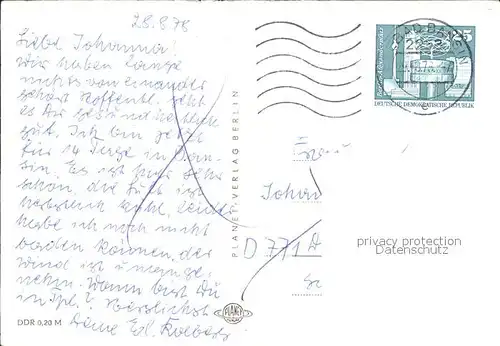 28.8.78
Liebe Johanna!
Wir haben lange
nichts voneinander
gehört. Hoffentl. geht
es Dir gesundheitlich
gut. Ich bin jetzt
für 14 Tage in
Es ist hier sehr
schön, die Luft ist
herbstlich kühl, leider
habe ich noch nicht
baden können, der
Wind ist zu
Wann bist Du
in Herzlichst
Deine
DDR 0,20 M
PLANET-VERLAG BERLIN
PLANET
25
DEUTSCHE DEMOKRATISCHE REPUBLIK
Frau
Johan
D 771
privacy protection
Datenschutz